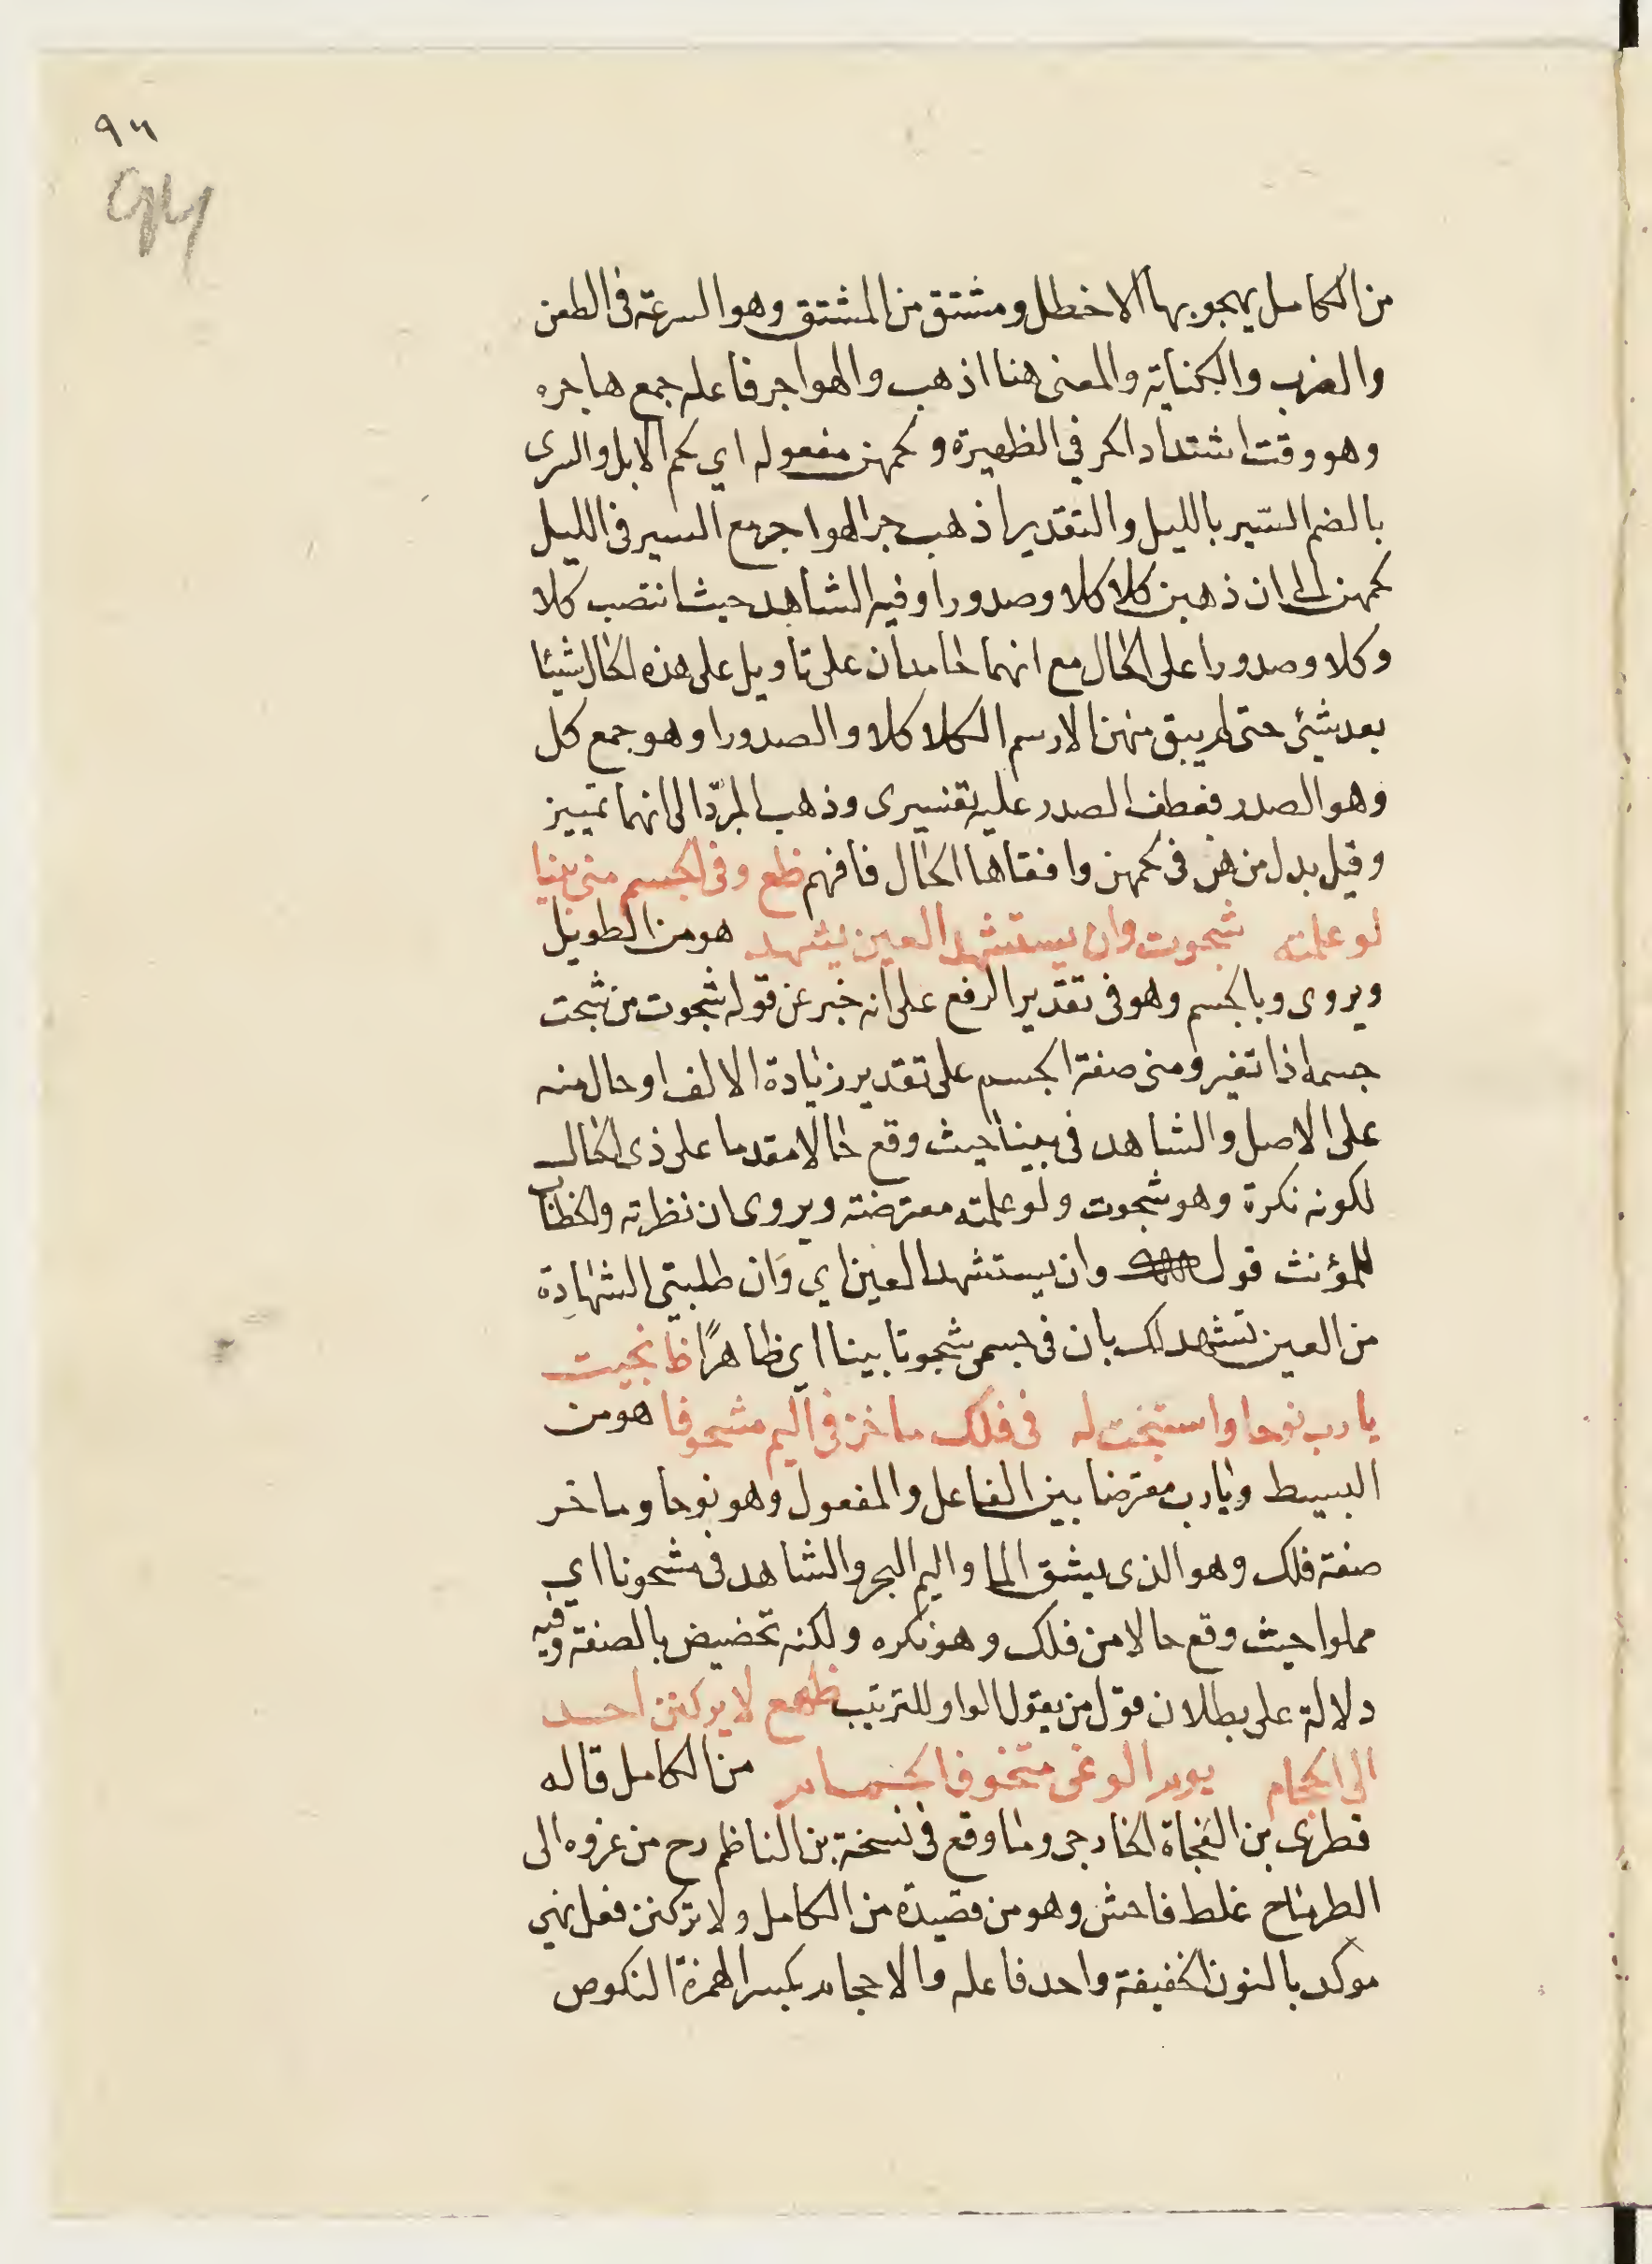 ٩٦
96
من الكامل يهجو بها الاخطل ومشتق من المشتق وهو السرعة فى الطعن
والضرب والكناية والمعنى هنا اذهب والهواجر فاعله جمع هاجره
وهو وقت اشتداد الحر في الظهيرة ولحمهن مفعوله اي لحم الابل والسرى
بالضم السير بالليل والتقدير اذهب حر الهواجر مع السير فى الليل
لحمهن الى ان ذهبن كلا كلا وصدورا وفيه الشاهد حيث انتصب كلا
وكلا وصدورا على الحال مع انهما جامدان على تاويل على هذه الحال شيئا
بعد شيئ حتى لم يبق منهن الا رسم الكلا كلا والصدورا وهو جمع كل
وهو الصدر فعطف الصدر عليه تفسيرى وذهب المبرّد الى انهما تمييز
وقيل بدل من هن فى لحمهن وافقاها الحال فافهم ظع وفى الجسم منى بينا
لو علمته شحوت وان يستشهد العين يشهد هو من الطويل
ويروى وبالجسم وهو فى تقدير الرفع على انه خبر عن قوله شحوت من شحت
جسمه اذا تغير ومنى صفة الجسم على تقدير زيادة الالف او حال منه
على الاصل والشاهد فى بينا حيث وقع حالا مقدما على ذى الحال
لكونه نكرة وهو شحوت ولو علمته معترضة ويروى ان نظرته والخطاب
للمؤنث قوله وان يستشهد العين اي وَان طلبتي الشهادة
من العين تشهد لك بان فى جسمى شحوتا بينا اي ظاهرًا ظا نجيت
يا رب نوحا واستجبت له فى فلك ماخر فى اليم مشحونا هو من
البسيط ويارب معترضا بين الفاعل والمفعول وهو نوحا وماخر
صفة فلك وهو الذى يشق الما واليم البحر والشاهد فى مشحونا اي
مملوا حيث وقع حالا من فلك وهو نكره ولكنه تخصيص بالصفة وفيه
دلالة على بطلان قول من يقول الواو للترتيب ظهع لا يركنن احد
الى الحجام يوم الوغى متخوفا لحمام من الكامل قاله
قطرى بن الفجاة الخارجى وما وقع فى نسخة بن الناظم رح من عزوه الى
الطرماح غلط فاحش وهو من قصيدة من الكامل ولا يركنن فعل نهي
موكد بالنون الخفيفة واحد فاعله والاحجام بكسر الهمزة النكوص